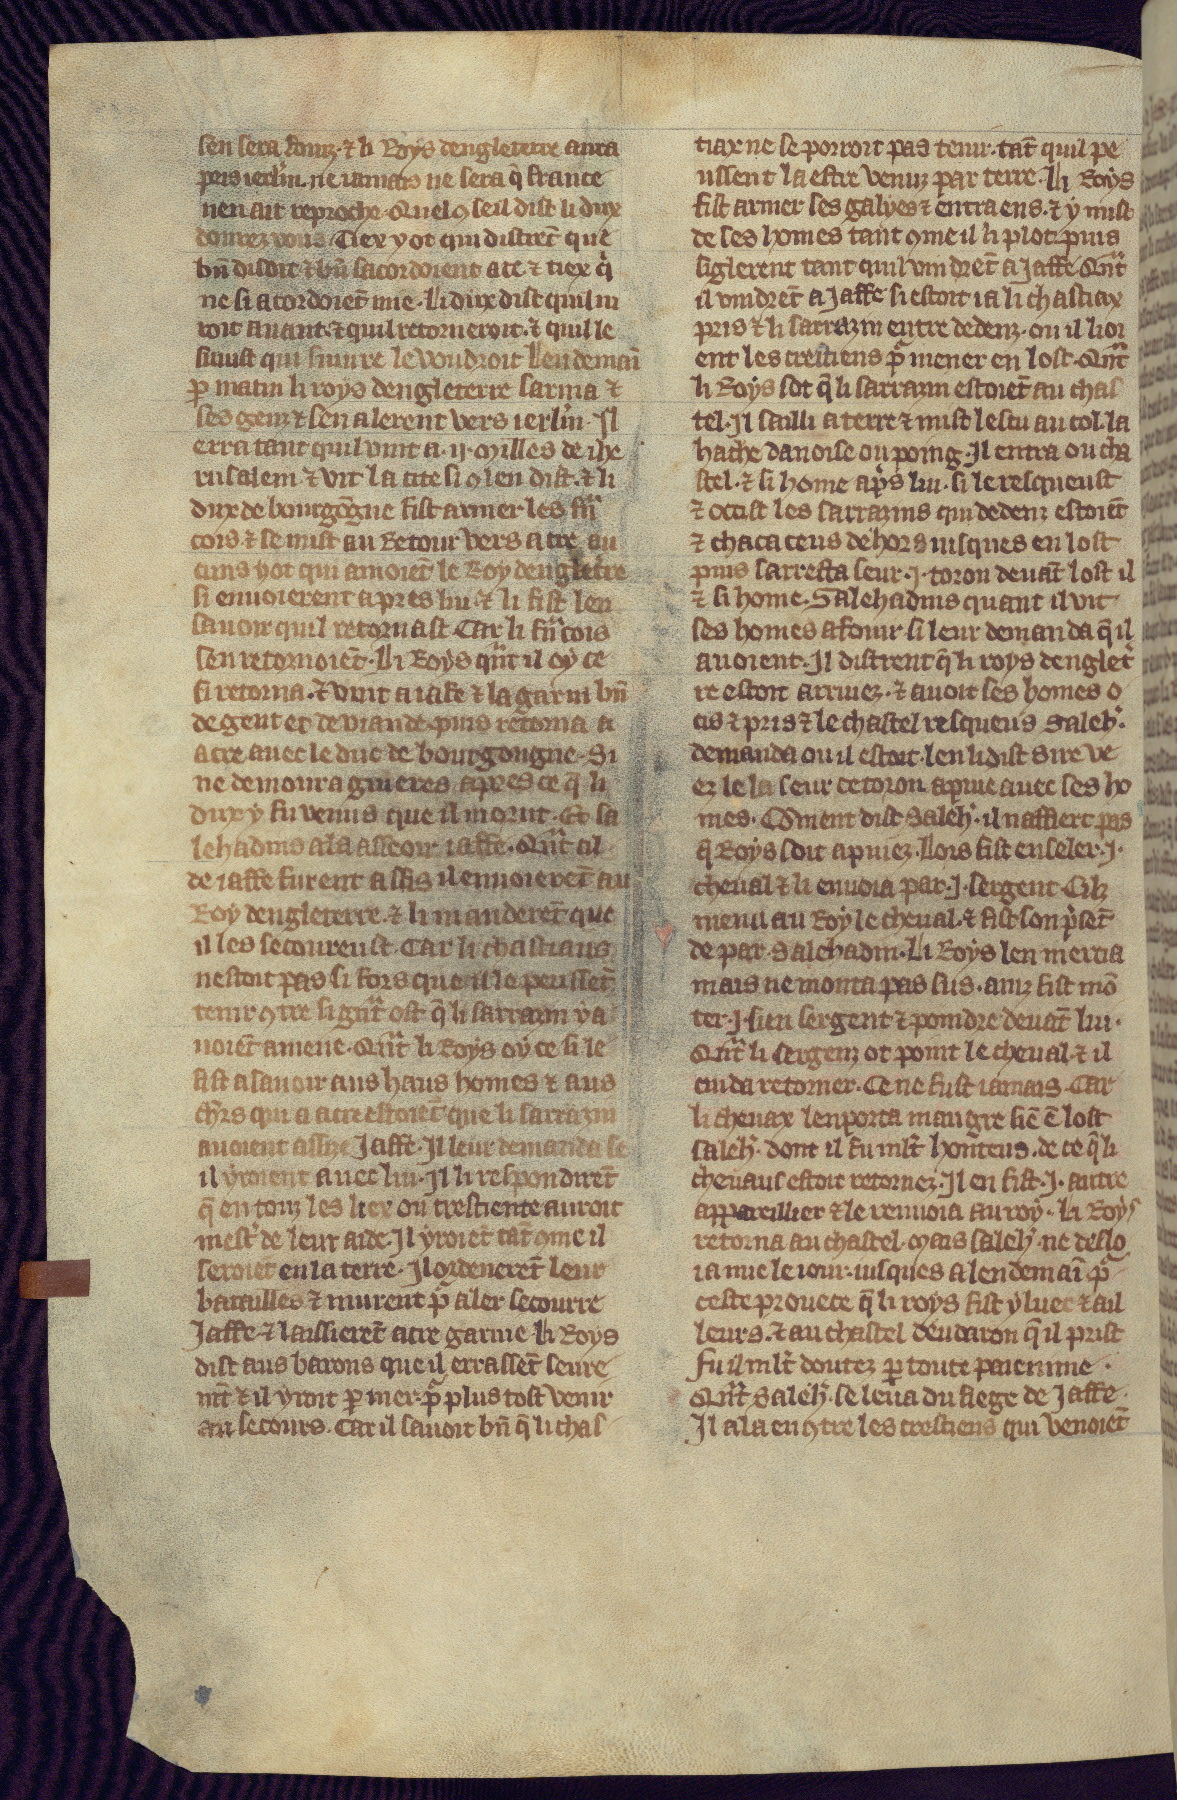 sen sera fouiz · ⁊ li Roys dengleterre aura
pris ierłm. ne iamais ne sera q̃ france
nen ait reproche · Quel ꝯseil dist li dux
donrez vous · Tiex y ot qui distrēt que
bn̄ disoit ⁊ bn̄ sacordoient a ce ⁊ tiex q̇
ne si acordoiēt mie · Li dux dist quil ni
roit auant · ⁊ quil retorneroit · ⁊ quil le
siuist qui siuure le voudroit Lendemaī
ꝑ matin li roys dengleterre sarma ⁊
ses genz ⁊ sen alerent vers ierłm · Il
erra tant quil vint a · ij · milles de ihe
rusalem ⁊ vit la cite si ꝯ len dist · ⁊ li
dux de bourgōgne fist armer les fn̄
cois ⁊ se mist au Retour vers acre au
cuns yot qui amoiēt le Roy denglet̄re
si enuoierent apres lui ⁊ li fist len
sauoir quil retornast Car li fn̄cois
sen retornoiēt · Li Roys qn̄t il oy ce
si retorna · ⁊ vint a iafe ⁊ la garni bn̄
de gent et de viande puis retorna a
acre auec le duc de bourgongne · Si
ne demoura guieres apres ce q̃ li
dux y fu venus que il morut · Et sa
lehadins ala asseoir iaffe · Qn̄t cil
de iaffe furent assis il enuoierēt au
Roy dengleterre · ⁊ li manderēt que
il les secoureust · Car li chastiaus
nestoit pas si fors que il le peussēt
tenir ꝯtre si gn̄t ost q̃ li sarrazin y a
uoiēt amene · Qn̄t li Roys oy ce si le
fist asauoir aus haus homes ⁊ aus
chr̄s qui a acre estoiēt que li sarrazin
auoient assize Jaffe · Il leur demanda se
il yroient auec lui · Il li respondirēt
q̃ en touz les liex ou crestiente auroit
mest̓ de leur aide · Il yroiēt tāt ꝯme il
seroiēt en la terre · Il ordenerēt leur
batailles ⁊ murent p̄ aler secourre
Jaffe ⁊ laissierēt acre garnie · Li Roys
dist aus barons que il errassēt seure
mt̄ ⁊ il yroit ꝑ mer · p̄ plus tost venir
au secours · Car il sauoit bn̄ q̃ li chas
tiax ne se porroit pas tenir · tāt quil pe
ussent la estre venuz par terre · Li Roys
fist armer ses galyes ⁊ entra ens · ⁊ y mist
de ses homes tant ꝯme il li plot puis
siglerent tant quil vindrēt a Jaffe Qn̄t
il vindrēt a Jaffe si estoit ia li chastiax
pris ⁊ li sarrazin entre dedenz · ou il lioi
ent les crestiens p̄ mener en lost · Qn̄t
li Roys sot q̃ li sarrazin estoiēt au chas
tel · Il sailli a terre ⁊ mist lescu au col · la
hache danoise ou poing · Il entra ou cha
stel · ⁊ si home ap̓s lui · si le resqueust
⁊ occist les sarrazins qui dedenz estoiēt
⁊ chaca ceus dehors iusques en lost
puis sarresta seur · j · toron deuāt lost il
⁊ si home · Salehadins quant il vit
ses homes afouir si leur demanda q̃ il
auoient · Il distrent q̃ li roys denglet̓
re estoit arriuez · ⁊ auoit ses homes o
cis ⁊ pris ⁊ le chastel resqueus Saleh̓ ·
demanda ou il estoit · len li dist Sire ve
ez le la seur ce toron a pie auec ses ho
mes · Cōment dist Saleh̓ · il naffiert pas
q̃ Roys soit a piez · Lors fist enseler · j ·
cheual ⁊ li enuoia par · j · sergent · Cilz
mena au Roy le cheual · ⁊ fist son p̓sēt
de par Salehadin · Li Roys len mercia
mais ne monta pas sus · ainz fist mō
ter · j · sien sergent ⁊ poindre deuāt lui ·
Qn̄t li sergenz ot point le cheual ⁊ il
cuida retorner · Ce ne fust iamais · Car
li cheuax lenporta maugre siē ē lost
saleh̓ · dont il fu mlt̄ honteus · de ce q̃ li
cheuaus estoit retornez · Il en fist · j · autre
appareillier ⁊ le renuoia au roy · Li Roys
retorna au chastel · Mais saleh̓ · ne deslo
ia mie le iour · iusques a lendemaī p̄
ceste prouece q̃ li roys fist yluec ⁊ ail
leurs · ⁊ au chastel doudaron q̃ il prist
fu il mlt̄ doutez ꝑ toute paiennie ·
Qn̄t Saleh̓ · se leua du siege de Jaffe ·
Il ala en ꝯtre les crestiens qui venoiēt